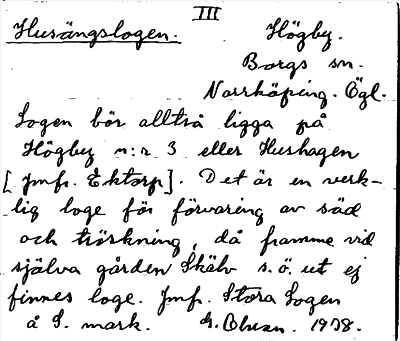 III
Husängslogen. Högby.
Borgs sn.
Norrköping. Ögl.
Logen bör alltså ligga på
Högby n:r 3 eller Hushagen
[Jmfr. Ektorp]. Det är en verk-
lig loge för förvaring av säd
och tröskning, då framme vid
själva gården Skälv s.ö. ut ej
finnes loge. Jmf. Stora Logen
å S. mark. 1938.